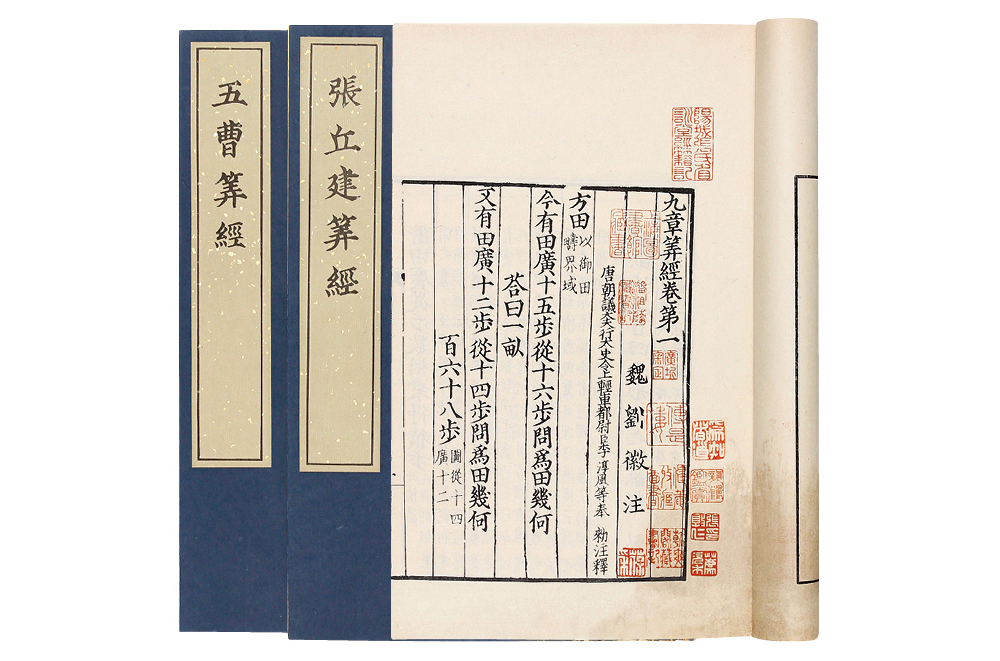 九章筭經卷第一
魏劉徽注
唐朝議大夫行太史令上輕車都尉臣李淳風等奉 勑注釋
方田以御田疇界域
今有田廣十五歩從十六歩問爲田幾何
荅曰一畝
又有田廣十二歩從十四歩問爲田幾何
百六十八歩圖從十四廣十二
張丘建筭經
五曹筭經